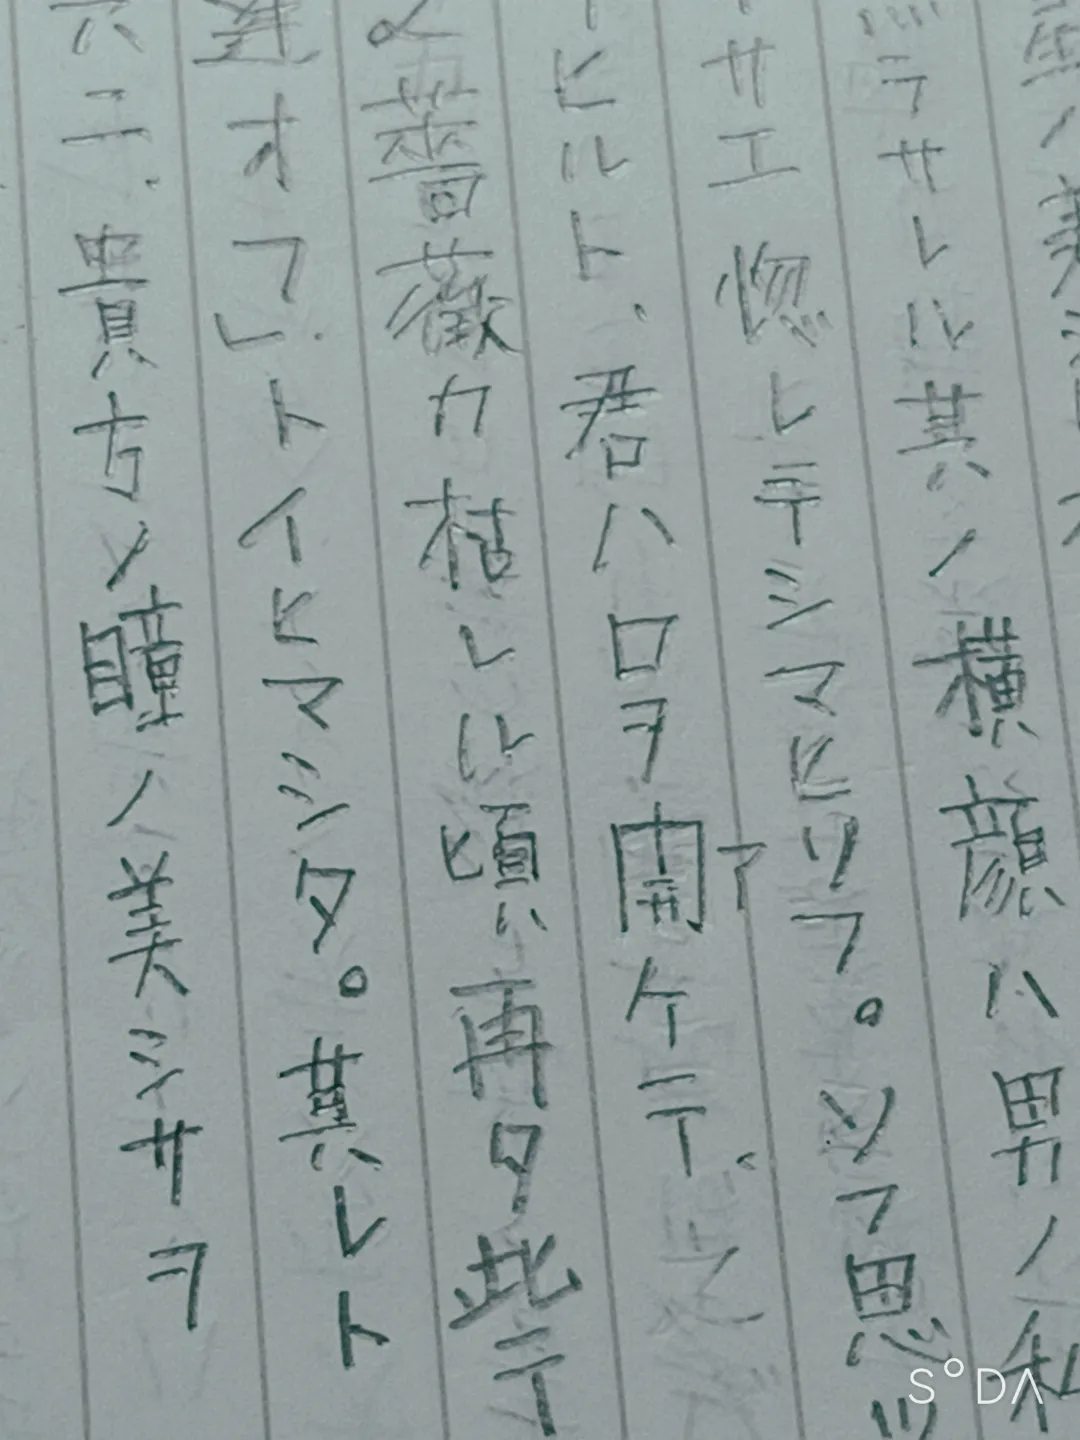 ノ美
ラサレル其ノ横顔ハ男ノ私
サエ惚レテシマヒソフ。ソフ思ッ
ヒルト、君ハ口ヲ開ケテ、
ア
薔薇カ枯レル頃再タ此テ
逢オフ」トイヒマシタ。其レト
ニ、貴方ノ瞳ノ美シサヲ
SODA